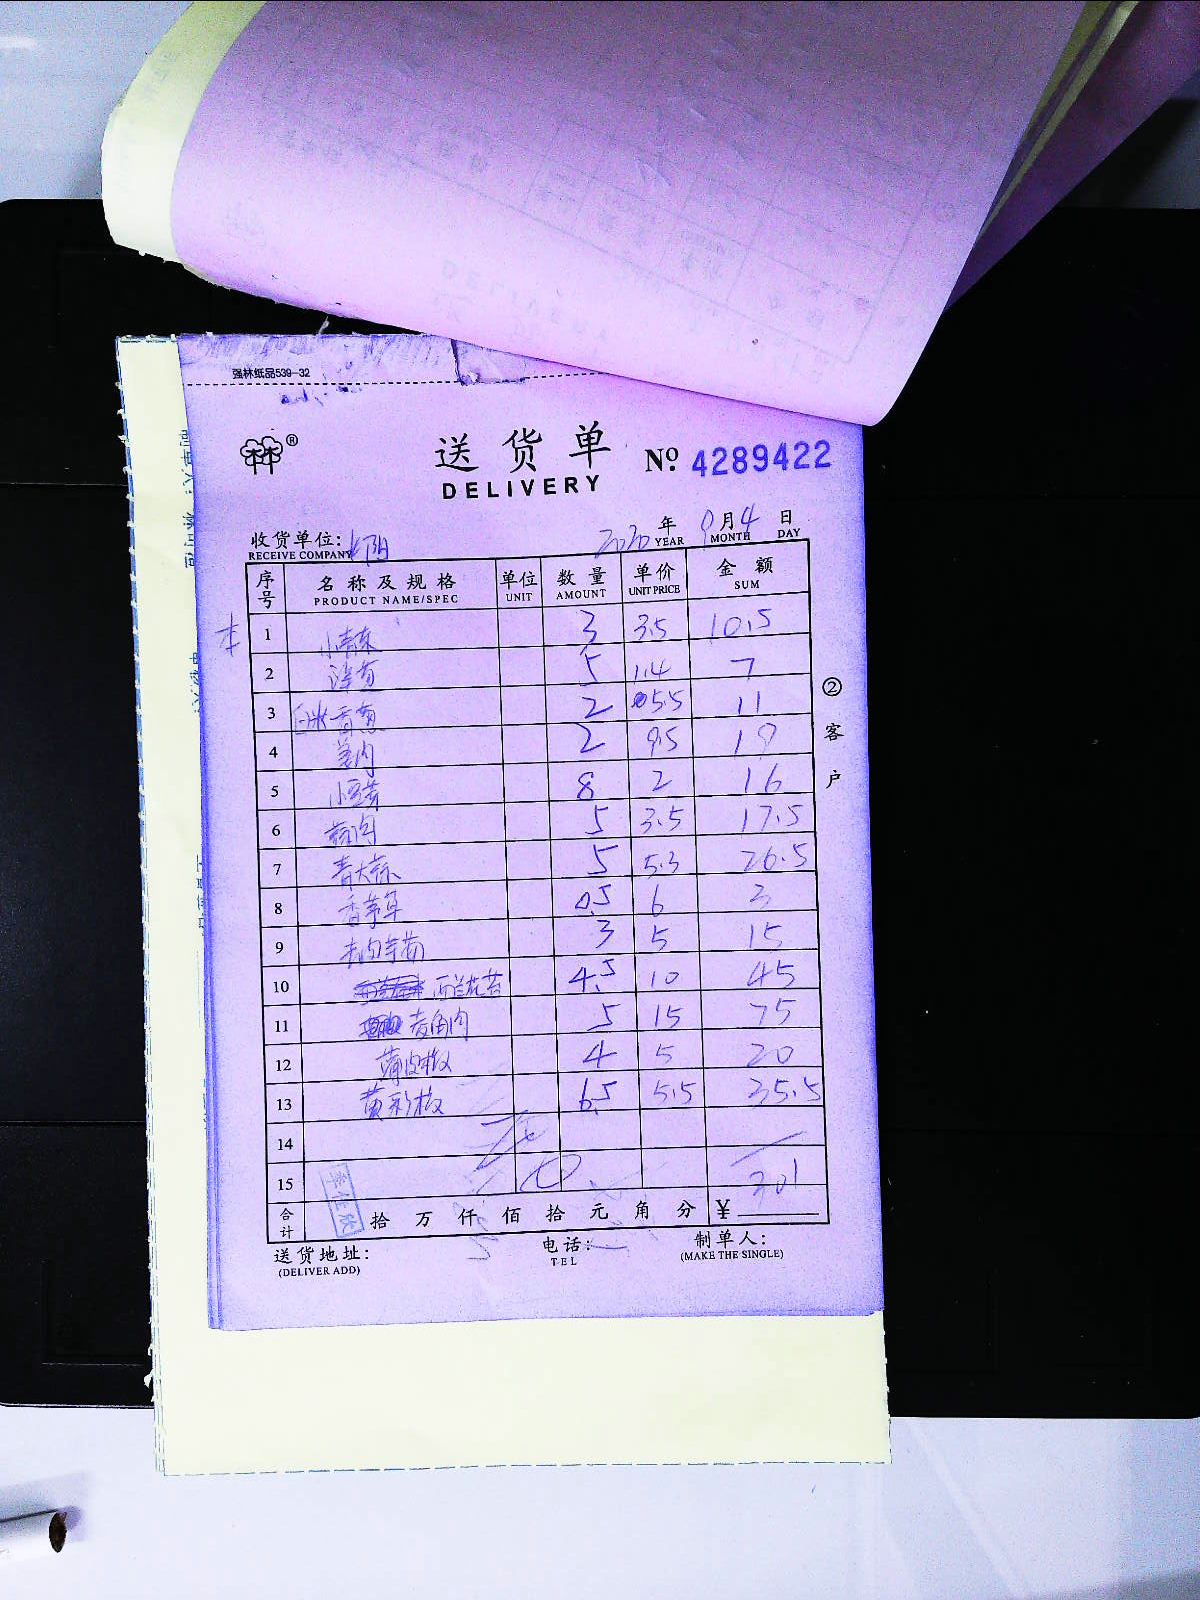 强林纸品539-32
® 送货单 Nº 4289422
DELIVERY
收货单位: 2020年9月4日
RECEIVE COMPANY YEAR MONTH DAY
序号 名称及规格 单位 数量 单价 金额
PRODUCT NAME/SPEC UNIT AMOUNT UNIT PRICE SUM
1 3 3.5 10.5
2 5 1.4 7
3 2 5.5 11
4 姜肉 2 9.5 19
5 小豆芽 8 2 16
6 蒜肉 5 3.5 17.5
7 青大蒜 5 5.3 26.5
8 香茅草 0.5 6 3
9 3 5 15
10 西兰花苔 4.5 10 45
11 菱角肉 5 15 75
12 薄皮椒 4 5 20
13 黄彩椒 6.5 5.5 35.5
14
15 301
合计 拾万仟佰拾元角分 ¥
送货地址: 电话: 制单人:
(DELIVER ADD) TEL (MAKE THE SINGLE)
②客户